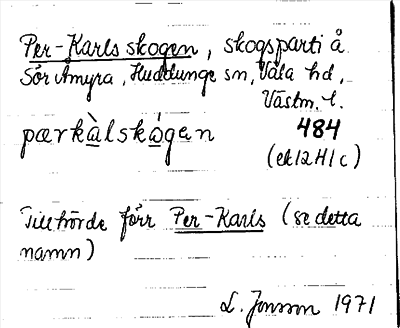 Per-Karls skogen, skogsparti å
Sör Åmyra, Huddunge sn, Våla hd,
Västm. l.
pærkàlskógen 484
(ek 12 H 1 c)
Tillhörde förr Per-Karls (se detta
namn)
L. Jonsson 1971